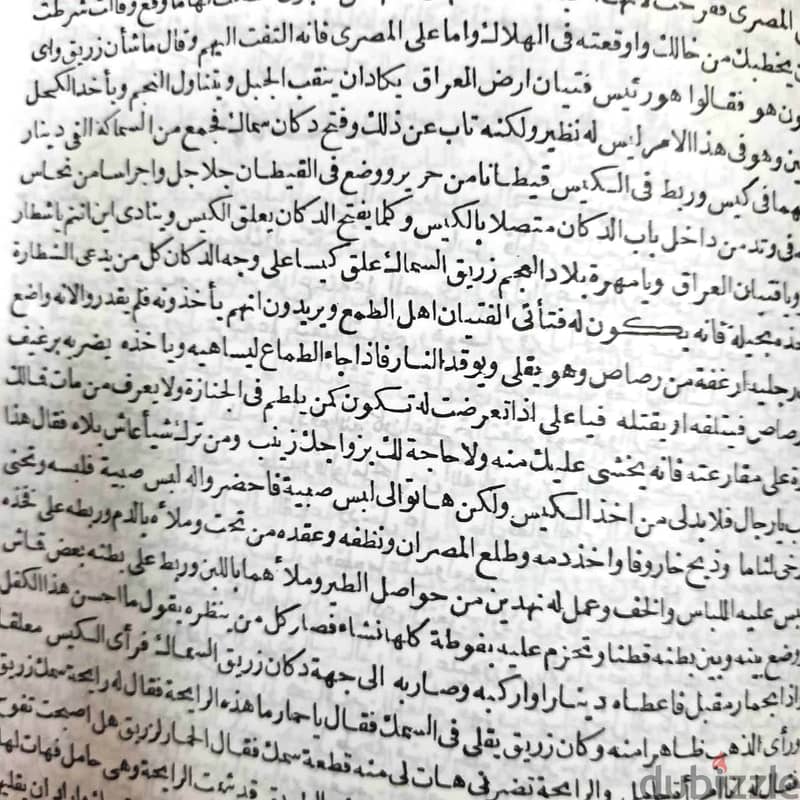 المصرى
يخطبك من خالك واوقعته فى الهلاك واما على المصرى فانه التفت اليهم وقال ما شأن زريق واى
هو فقالوا هو رئيس فتيان ارض العراق يكاد ان ينقب الجبل ويتناول النجم ويأخذ الكحل
وهو فى هذا الامر ليس له نظير ولكنه تاب عن ذلك وفتح دكان سماك فجمع من السماكة الفى دينار
فى كيس وربط فى الكيس قيطانا من حرير ووضع فى القيطان جلاجل واجراسا من نحاس
فى وتد من داخل باب الدكان متصلا بالكيس وكلما يفتح الدكان يعلق الكيس وينادى اين انتم ياشطار
ويافتيان العراق ويامهرة بلاد العجم زريق السماك علق كيسا على وجه الدكان كل من يدعى الشطارة
بحيلة فانه يكون له فتأتى الفتيان اهل الطمع ويريدون انهم يأخذونه فلم يقدروا لانه واضع
ارغفة من رصاص وهو يقلى ويوقد النار فاذا جاء الطماع ليساهيه وياخذه يضربه برغيف
رصاص فيتلفه او يقتله فياعلى اذا تعرضت له تكون كمن يلطم فى الجنازة ولا يعرف من مات فالك
على مقارعته فانه يخشى عليك منه ولا حاجة لك بزواجك زينب ومن ترك شيأ عاش بلاه فقال هذا
يارجال فلا بد لى من اخذ الكيس ولكن هاتوا لى لبس صبية فاحضروا له لبس صبية فلبسه وتحنى
لثاما وذبح خاروفا واخذ دمه وطلع المصران ونظفه وعقده من تحت وملأه بالدم وربطه على فخذه
عليه اللباس والخف وعمل له نهدين من حواصل الطير وملأهما باللبن وربط على بطنه بعض قماش
ووضع بينه وبين بطنه قطنا وتحزم عليه بفوطة كلها نشاء فصار كل من ينظره يقول ما احسن هذا الكفل
واذا بحمار مقبل فاعطاه دينارا واركبه وصار به الى جهة دكان زريق السماك فرأى الكيس معلقا
ورأى الذهب ظاهرا منه وكان زريق يقلى فى السمك فقال ياحمار ما هذه الرايحة فقال له رايحة سمك زريق
والرايحة تضر فى هات لى منه قطعة سمك فقال الحمار لزريق هل اصبحت تفوح
الرايحة وهى حامل فهات لها
dubizzle